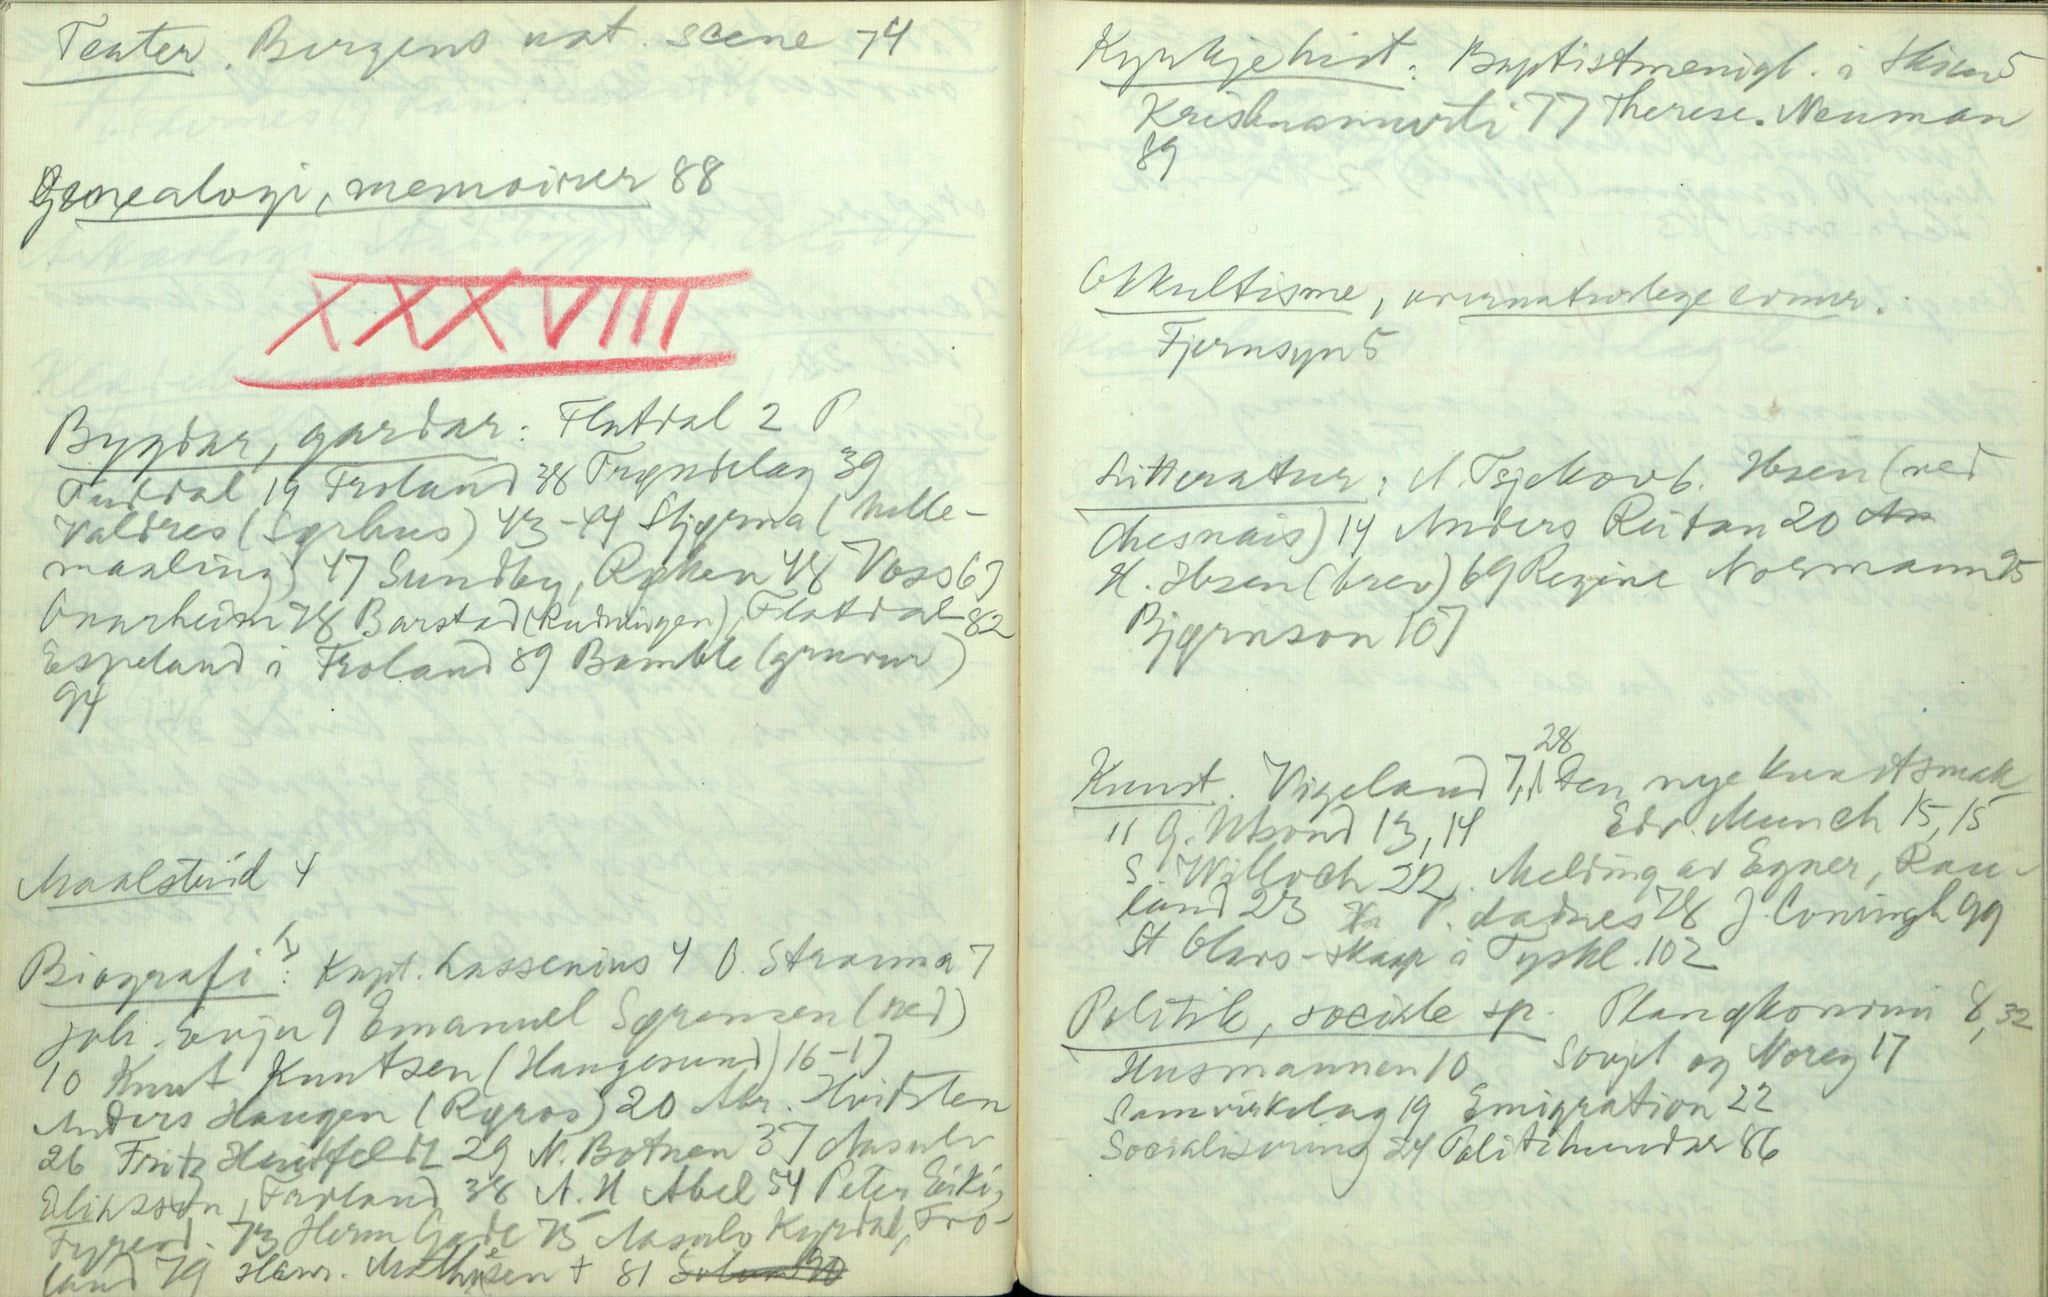 Teater. Bergens nat. scene 74
Genealogi, memoirer 88
XXXVIII
Bygdar, gardar: Flatdal 2
Tuddal 19 Froland 38 Trøndelag 39
Valdres (Sørhus) 43-44 Stjørna (
maaling) 47 Sundby, Røken 48 Voss 67
Onarheim 78 Barstad (Rudningen), Flatdal 82
Espeland i Froland 89 Bamble (gruver)
94
Maalstrid 4
Biografi: Kapt. Lassenius 4 O. Strauma 7
Joh. Evju 9 Emanuel Sørensen (ned)
10 Knut Knutsen (Haugesund) 16-17
Anders Haugen (Røros) 20 Abr. Hvidsten
26 Fritz Heitfeldt 29 N. Botnen 37 Aasulv
Froland 38 N. H Abel 54 Peter
73 Herm Gade 75 Aasulv Kyrdal, Fro-
land 79 Hans. Mathisen + 81
Kyrkjehist: Baptistmenigh. i Skien 5
Krishnamurti 77 Therese Neuman
89
Okkultisme, overnaturlege evner.
Fjernsyn 5
Litteratur: A. Tsjekov 6. Ibsen (ved
Chesnais) 14 Anders Reitan 20 An
H. Ibsen (brev) 69 Regine Normann 95
Bjørnson 107
28
Kunst. Vigeland 7, Den nye kunstsmak
11 G. Utsond 13, 14 Edv. Munch 15, 15
S Willoch 22. Melding av Egner, Rau-
land 23 P. Aadnes 78 J. Coningh 99
St Olavs-skaap i Tyskl. 102
Politik, sociale sp. Planøkonomi 8, 32
Husmannen 10 Sovjet og Noreg 17
Samvirkelag 19 Emigration 22
Socialisering 24 Politihundar 86